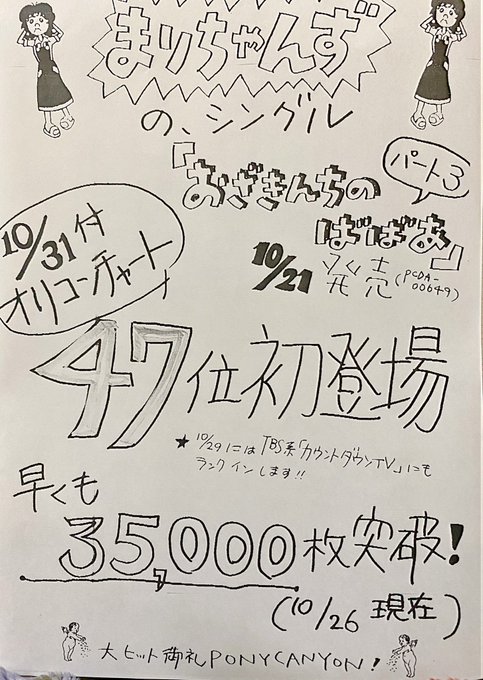 まりちゃんず
の、シングル
「おざきんちの
ばばあ」
パート3
10/21 発売 (PCDA-00649)
10/31付
オリコンチャート
47位初登場
★ 10/29にはTBS系「カウントダウンTV」にも
ランクインします!!
早くも
35,000枚突破!
(10/26 現在)
大ヒット御礼 PONYCANYON!